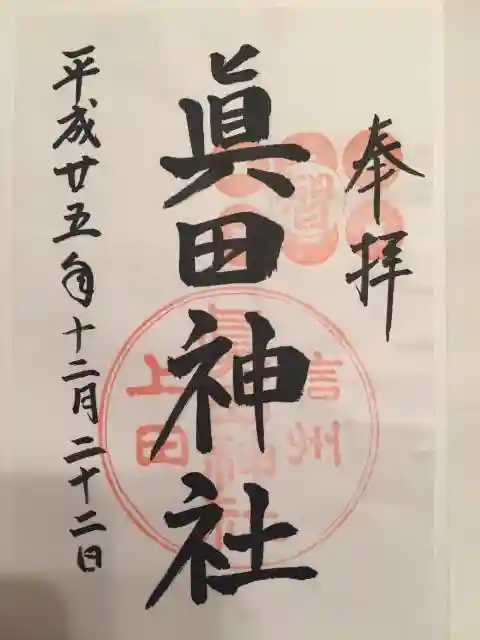 奉拝
眞田神社
信州
眞田神社
上田
平成廿五年十二月二十二日